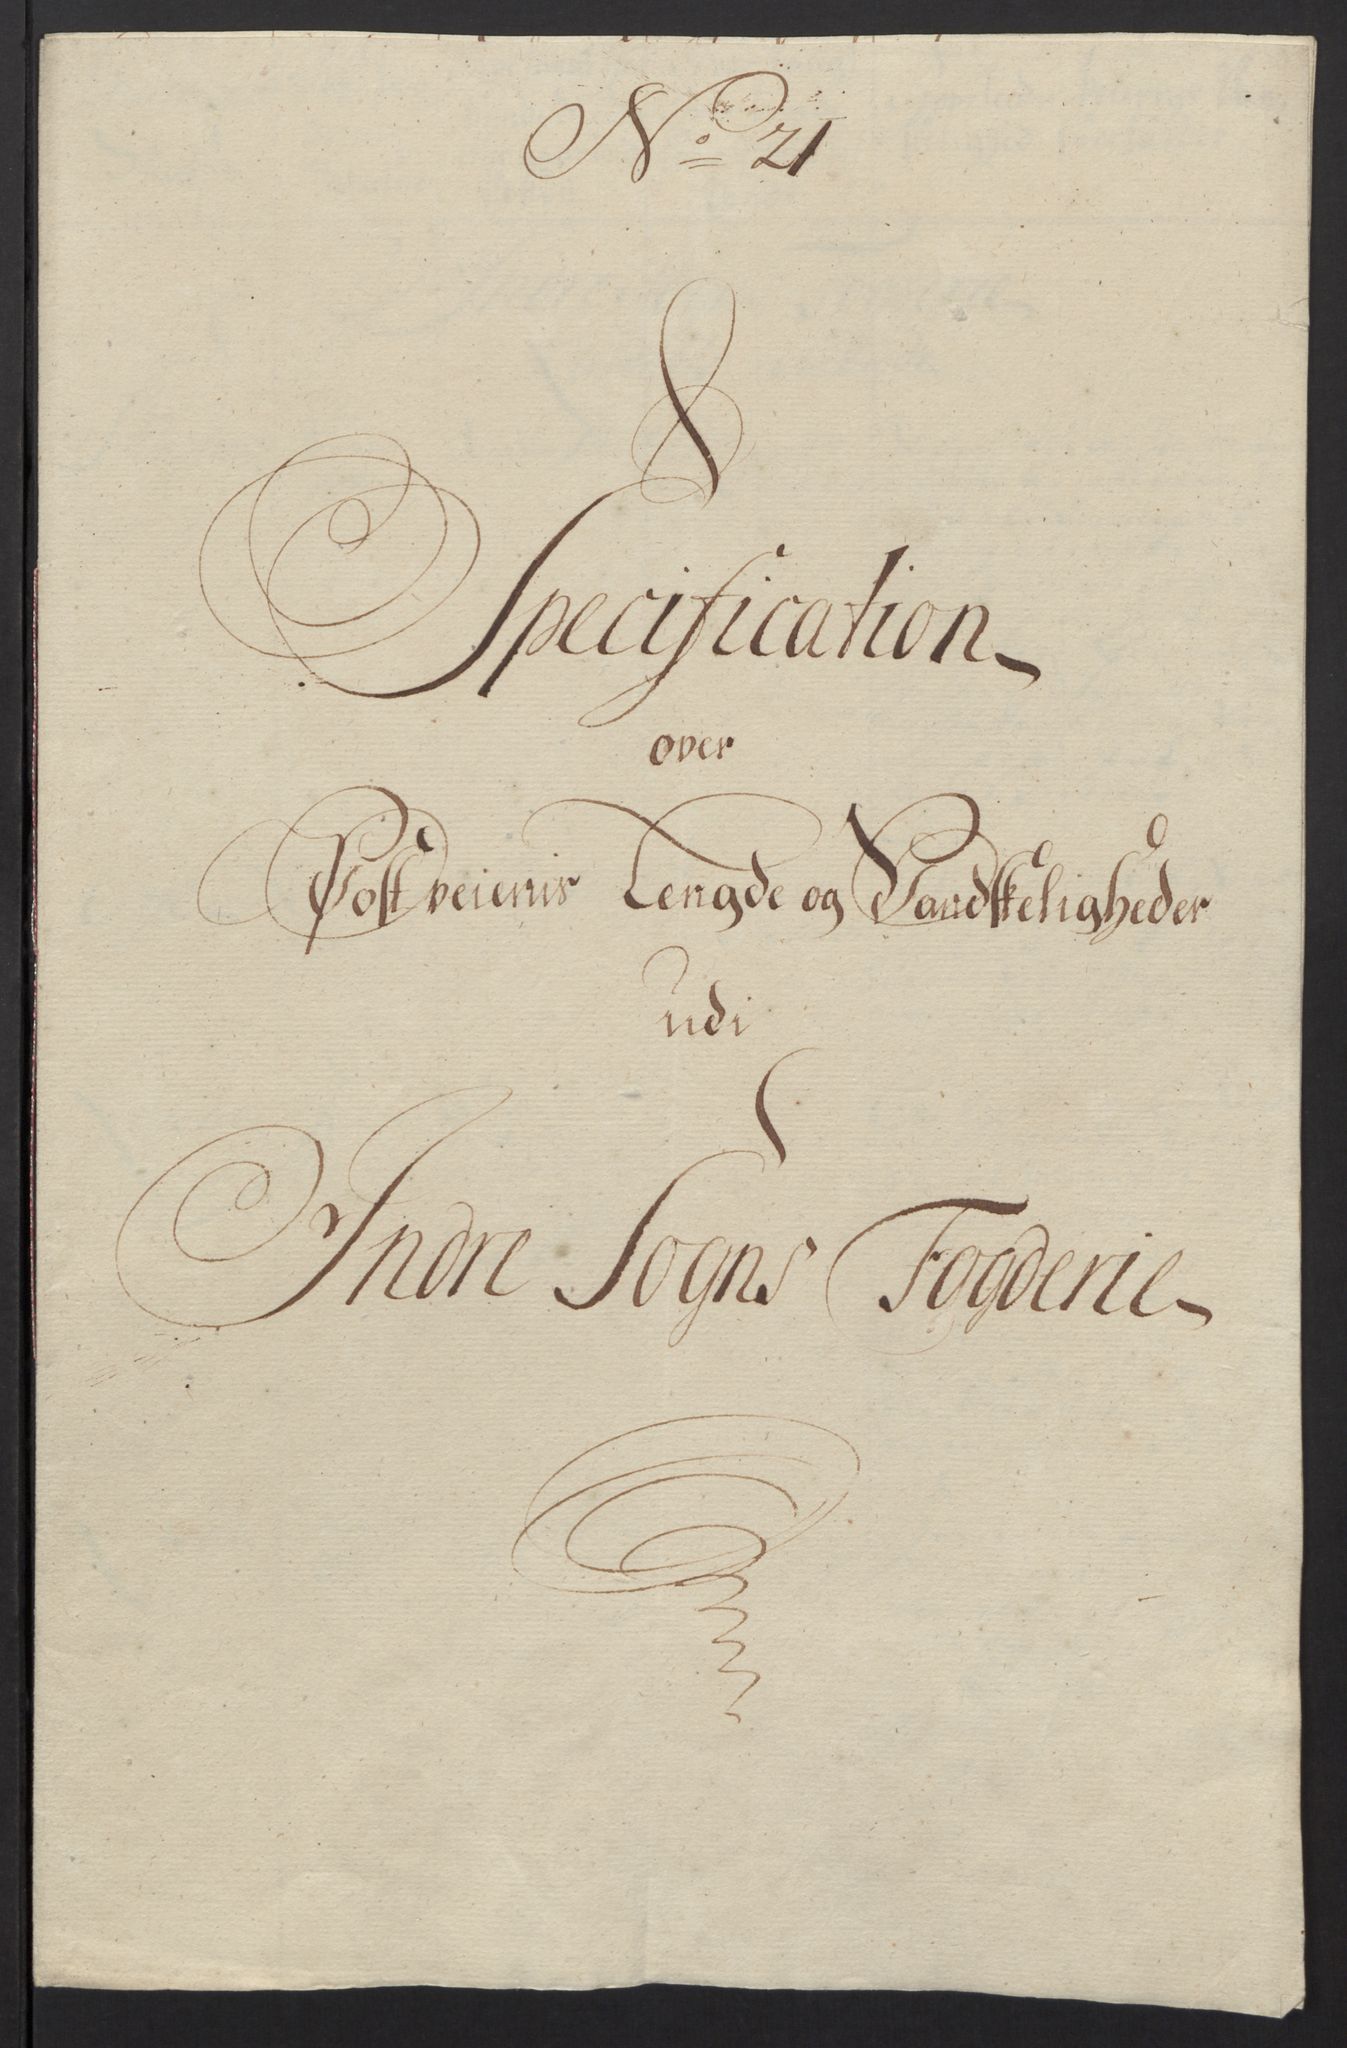 No 21
Specification
over
Postveienes Lengde og Vandskeligheder
udi
Indre Sogns Fogderie